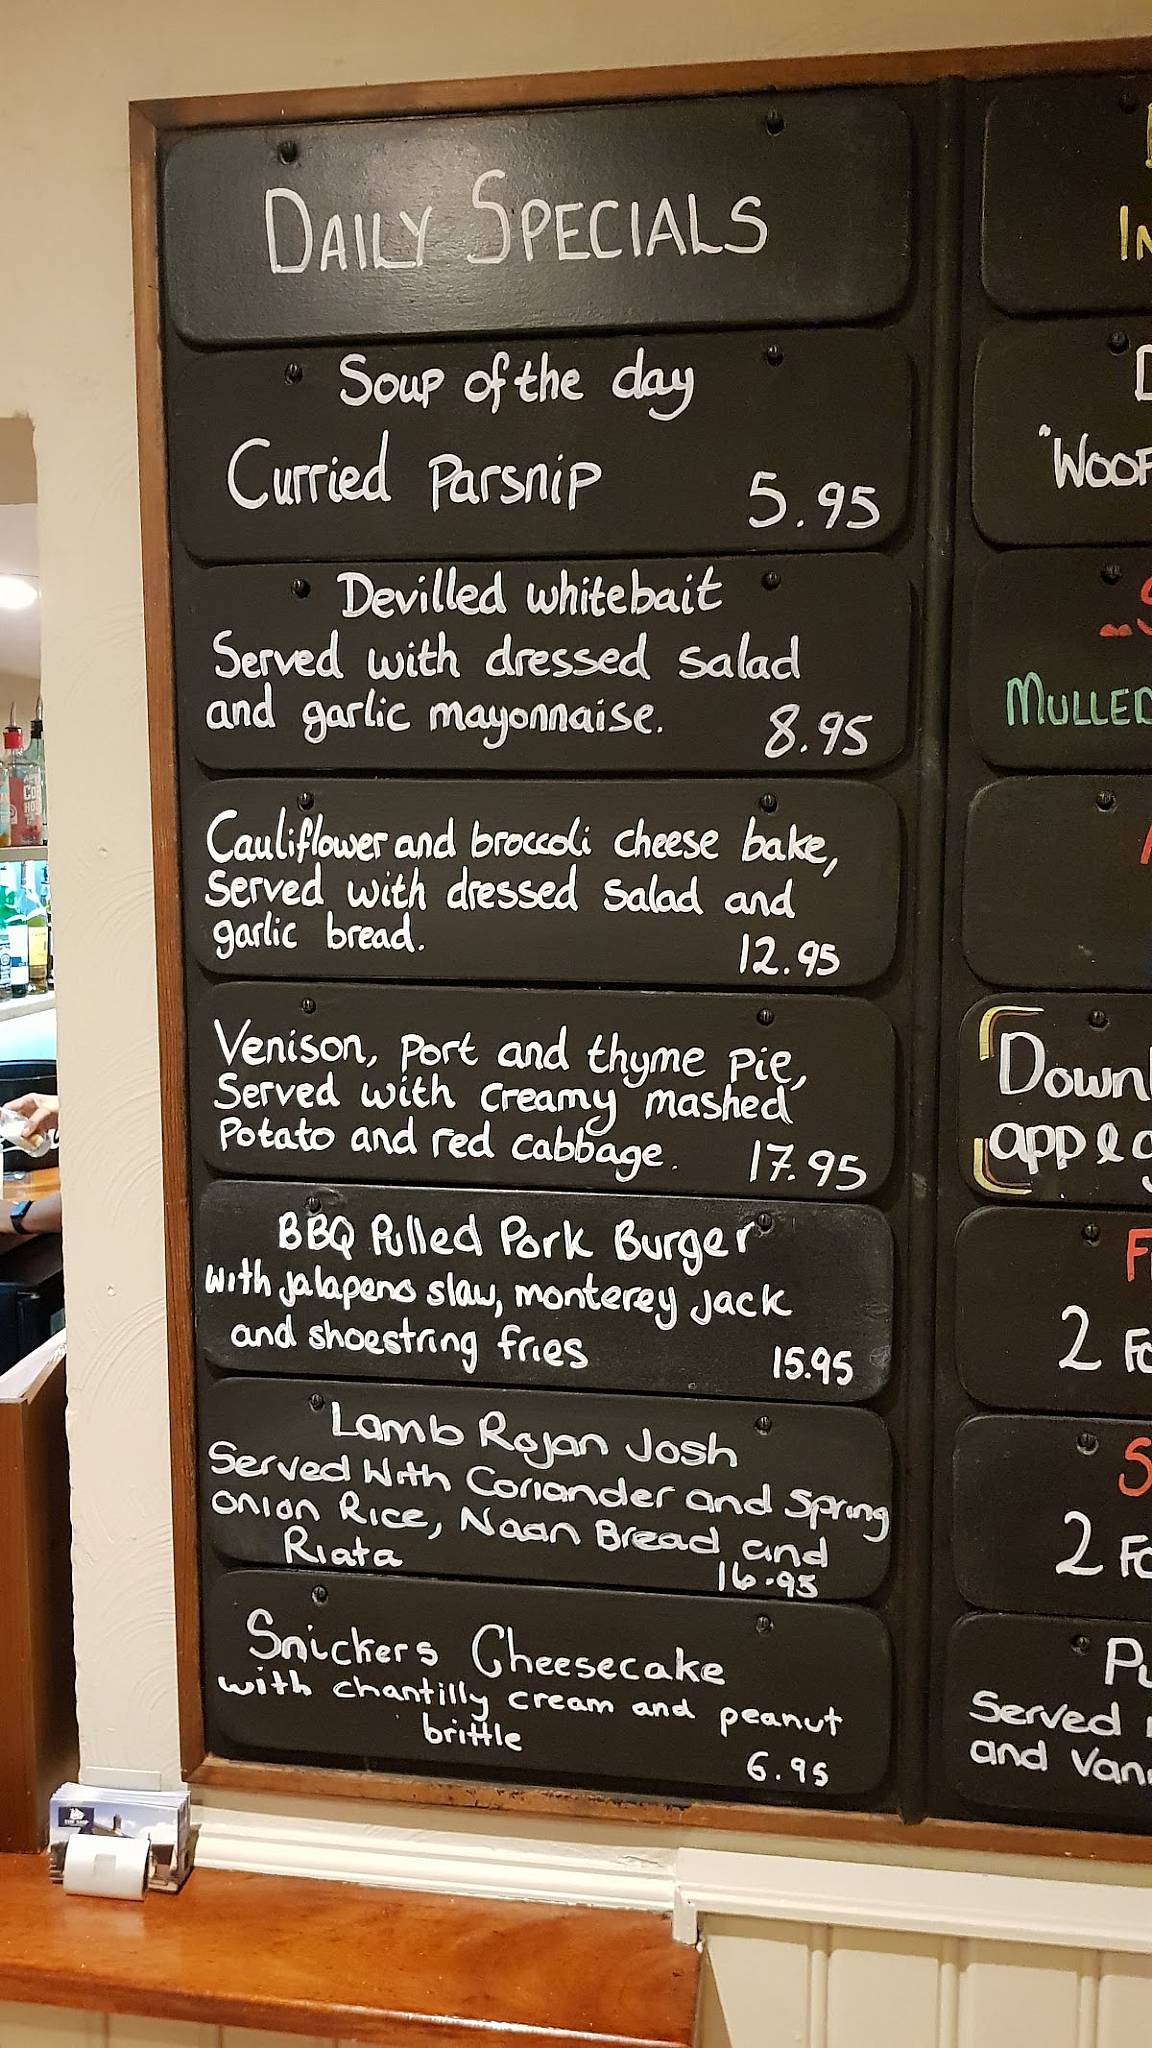 DAILY SPECIALS
Soup of the day
Curried Parsnip
5.95
Devilled whitebait
Served with dressed salad
and garlic mayonnaise.
8.95
Cauliflower and broccoli cheese bake,
Served with dressed salad and
garlic bread.
12.95
Venison, port and thyme pie,
Served with creamy mashed
potato and red cabbage.
17.95
BBQ Pulled Pork Burger
with jalapeno slaw, monterey jack
and shoestring fries
15.95
Lamb Rojan Josh
Served With Coriander and Spring
Onion Rice, Naan Bread and
Riata
16.95
Snickers Cheesecake
with chantilly cream and peanut
brittle
6.95
MULLED
2
2
Served
and